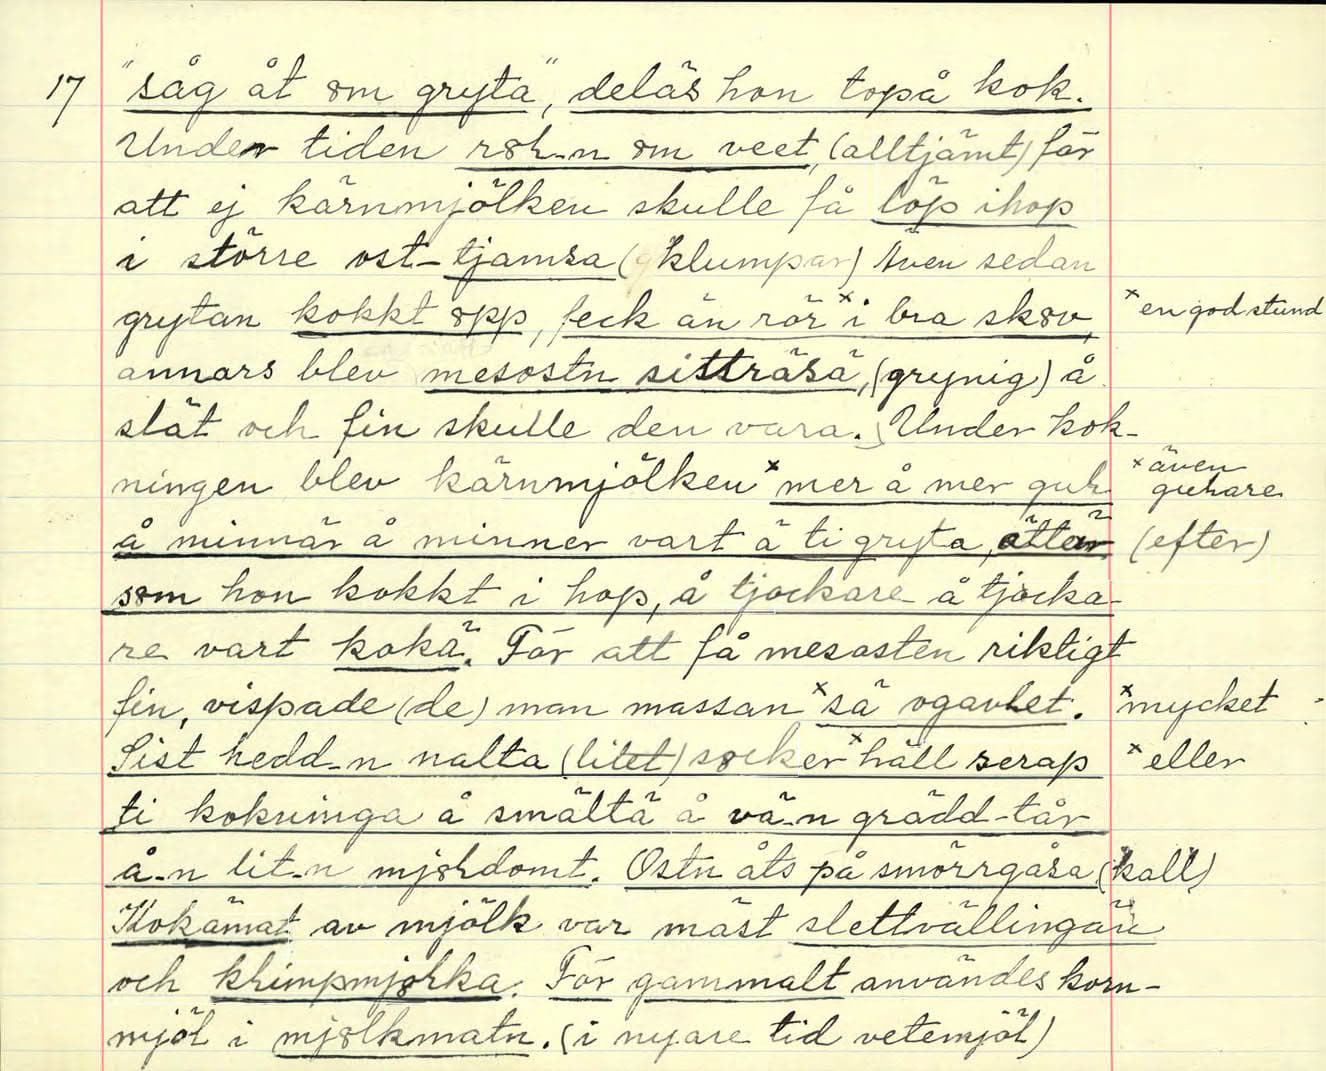 17 "såg åt om gryta", deläs hon topå kok.
Under tiden rör-n om veet, (alltjämt) för
att ej kärnmjölken skulle få löp ihop
i större ost-tjamsa (klumpar) Även sedan
grytan kokkt opp, feck än rör x i bra skov, x en god stund
annars blev mesostn sitträsä, (grynig) å
slät och fin skulle den vara. Under kok-
ningen blev kärnmjölken x mer å mer guh x även guhare
å minnär å minner vart ä ti gryta, ättär (efter)
som hon kokkt i hop, å tjockare å tjocka-
re vart kokä. För att få mesosten riktigt
fin, vispade (de) man massan x sä ogavlet. x mycket
Sist hedd-n nalta (litet) socker x häll serap x eller
ti kokninga å smältä å vä-n grädd-tår
å-n lit-n mjohdomt. Ostn åts på smörrgåsa (kall)
Kokämat av mjölk var mäst slettvällingän
och khimpmjohka. För gammalt användes korn-
mjöl i mjölkmatn. (i nyare tid vetemjöl)